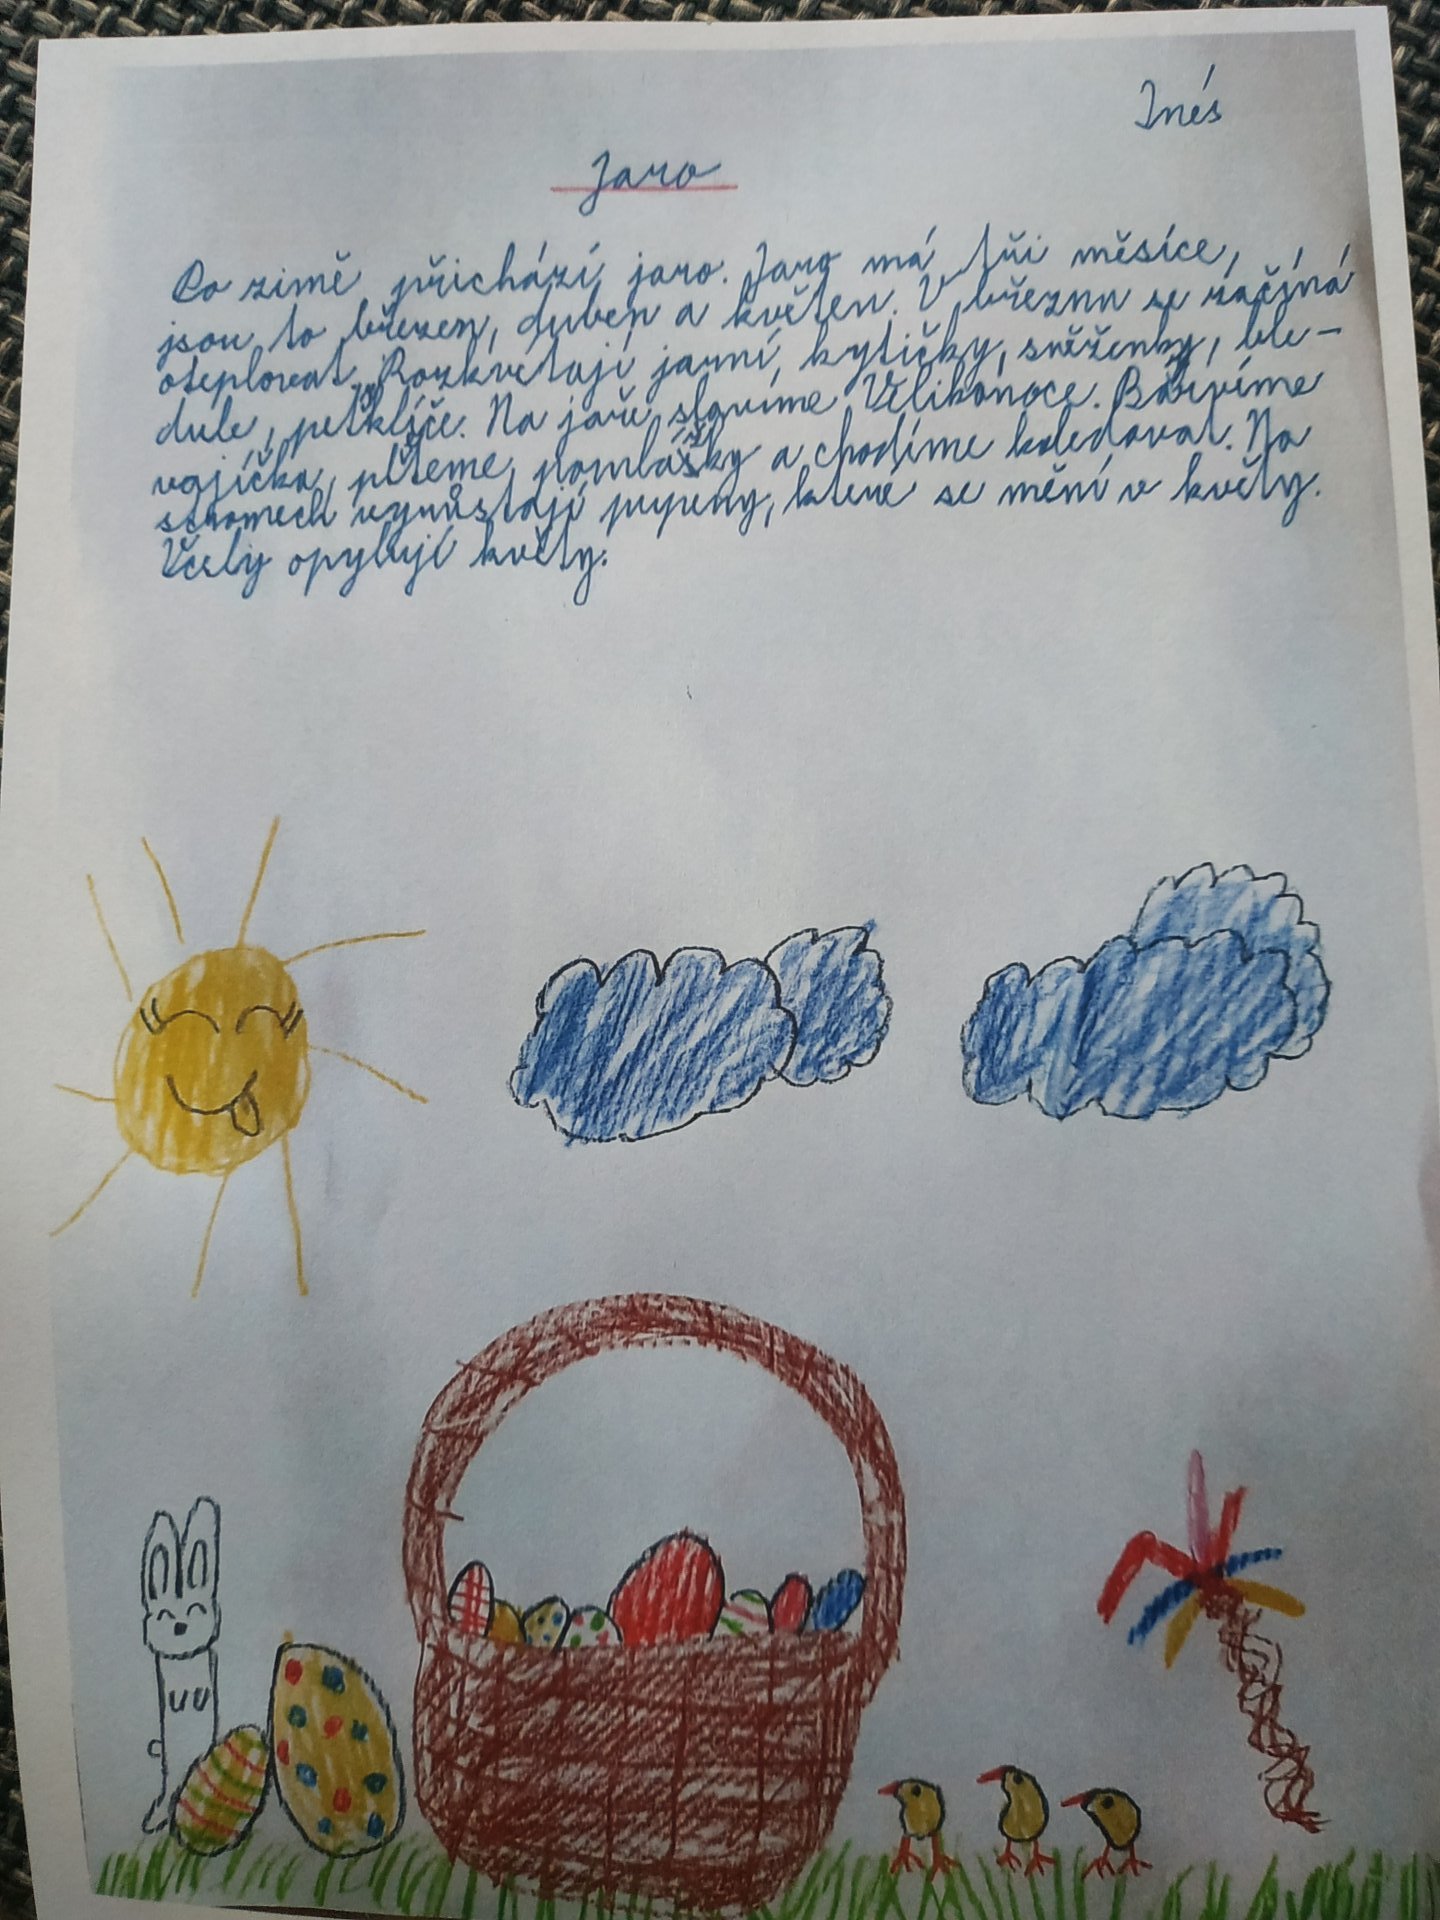 Inés
Jaro
Po zimě přichází jaro. Jaro má tři měsíce,
jsou to březen, duben a květen. V březnu se začíná
oteplovat. Rozkvétají jarní kytičky, sněženky, ble-
dule, petklíče. Na jaře slavíme Velikonoce. Barvíme
vajíčka, pleteme pomlásky a chodíme koledovat. Na
stromech vyrůstají pupeny, které se mění v květy.
Včely opylují květy.